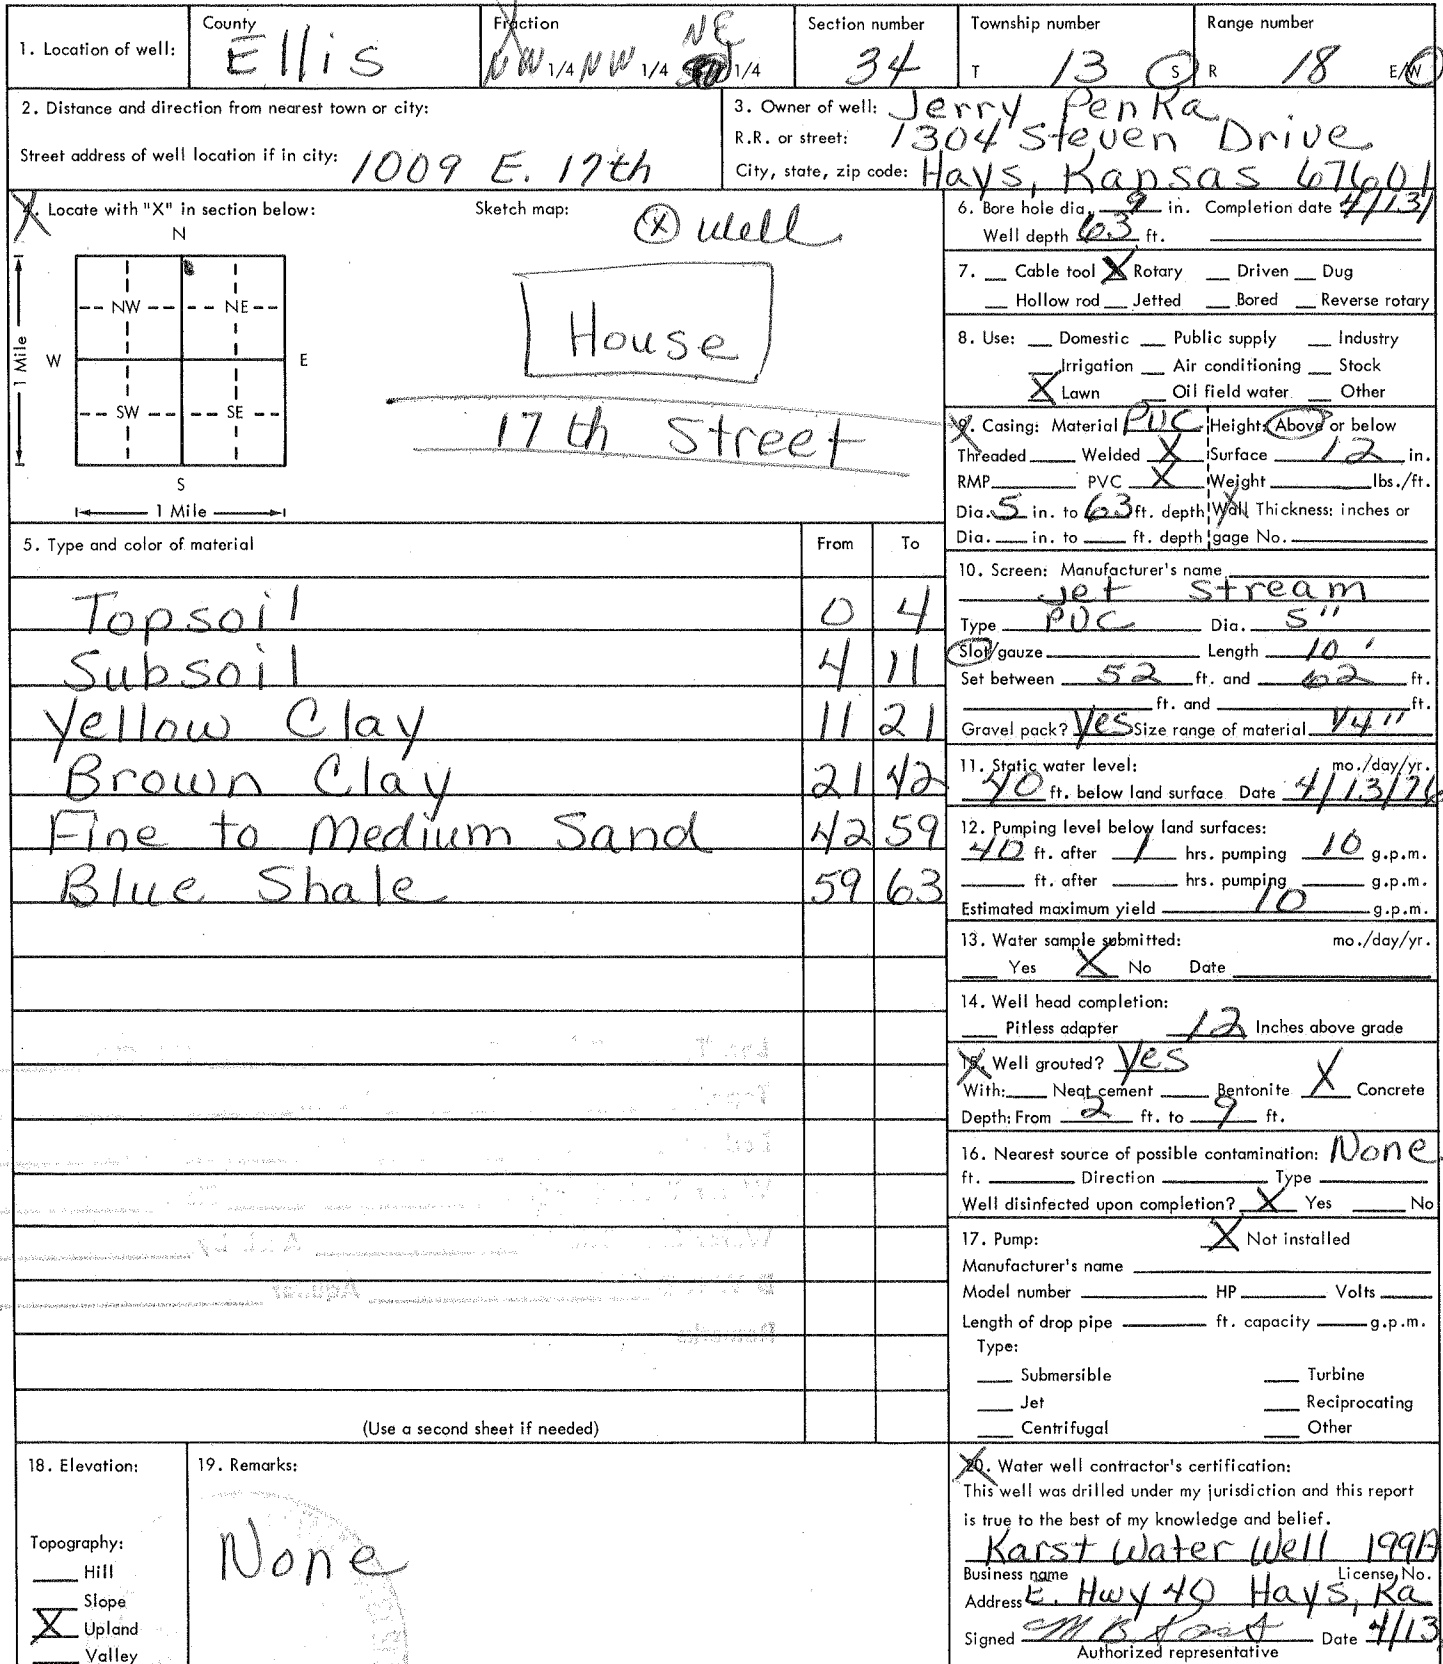 1. Location of well: County Ellis Fraction NW 1/4 NW 1/4 NE 1/4 Section number 34 Township number T 13 S Range number R 18 E/W
2. Distance and direction from nearest town or city:
Street address of well location if in city: 1009 E. 17th
3. Owner of well: Jerry Penka
R.R. or street: 1304 Steven Drive
City, state, zip code: Hays, Kansas 67601
4. Locate with "X" in section below: Sketch map:
N
NW NE
W E
SW SE
S
1 Mile
1 Mile
X well
House
17th Street
6. Bore hole dia. 9 in. Completion date 4/13/
Well depth 63 ft.
7. Cable tool X Rotary Driven Dug
Hollow rod Jetted Bored Reverse rotary
8. Use: Domestic Public supply Industry
Irrigation Air conditioning Stock
X Lawn Oil field water Other
9. Casing: Material PVC Height: Above or below
Threaded Welded X Surface 12 in.
RMP PVC X Weight lbs./ft.
Dia. 5 in. to 63 ft. depth Wall Thickness: inches or
Dia. in. to ft. depth gage No.
5. Type and color of material From To
Topsoil 0 4
Subsoil 4 11
Yellow Clay 11 21
Brown Clay 21 42
Fine to Medium Sand 42 59
Blue Shale 59 63
(Use a second sheet if needed)
10. Screen: Manufacturer's name
Jet Stream
Type PVC Dia. 5"
Slot/gauze Length 10'
Set between 52 ft. and 62 ft.
ft. and ft.
Gravel pack? Yes Size range of material 1/4"
11. Static water level: mo./day/yr.
40 ft. below land surface Date 4/13/76
12. Pumping level below land surfaces:
40 ft. after 1 hrs. pumping 10 g.p.m.
ft. after hrs. pumping g.p.m.
Estimated maximum yield 10 g.p.m.
13. Water sample submitted: mo./day/yr.
Yes X No Date
14. Well head completion:
Pitless adapter 12 Inches above grade
15. Well grouted? Yes
With: Neat cement Bentonite X Concrete
Depth: From 2 ft. to 9 ft.
16. Nearest source of possible contamination: None
ft. Direction Type
Well disinfected upon completion? X Yes No
17. Pump: X Not installed
Manufacturer's name
Model number HP Volts
Length of drop pipe ft. capacity g.p.m.
Type:
Submersible Turbine
Jet Reciprocating
Centrifugal Other
18. Elevation:
Topography:
Hill
Slope
X Upland
Valley
19. Remarks:
None
20. Water well contractor's certification:
This well was drilled under my jurisdiction and this report
is true to the best of my knowledge and belief.
Karst Water Well 199A
Business name License No.
Address E. Hwy 40 Hays, Ka
Signed Date 4/13
Authorized representative